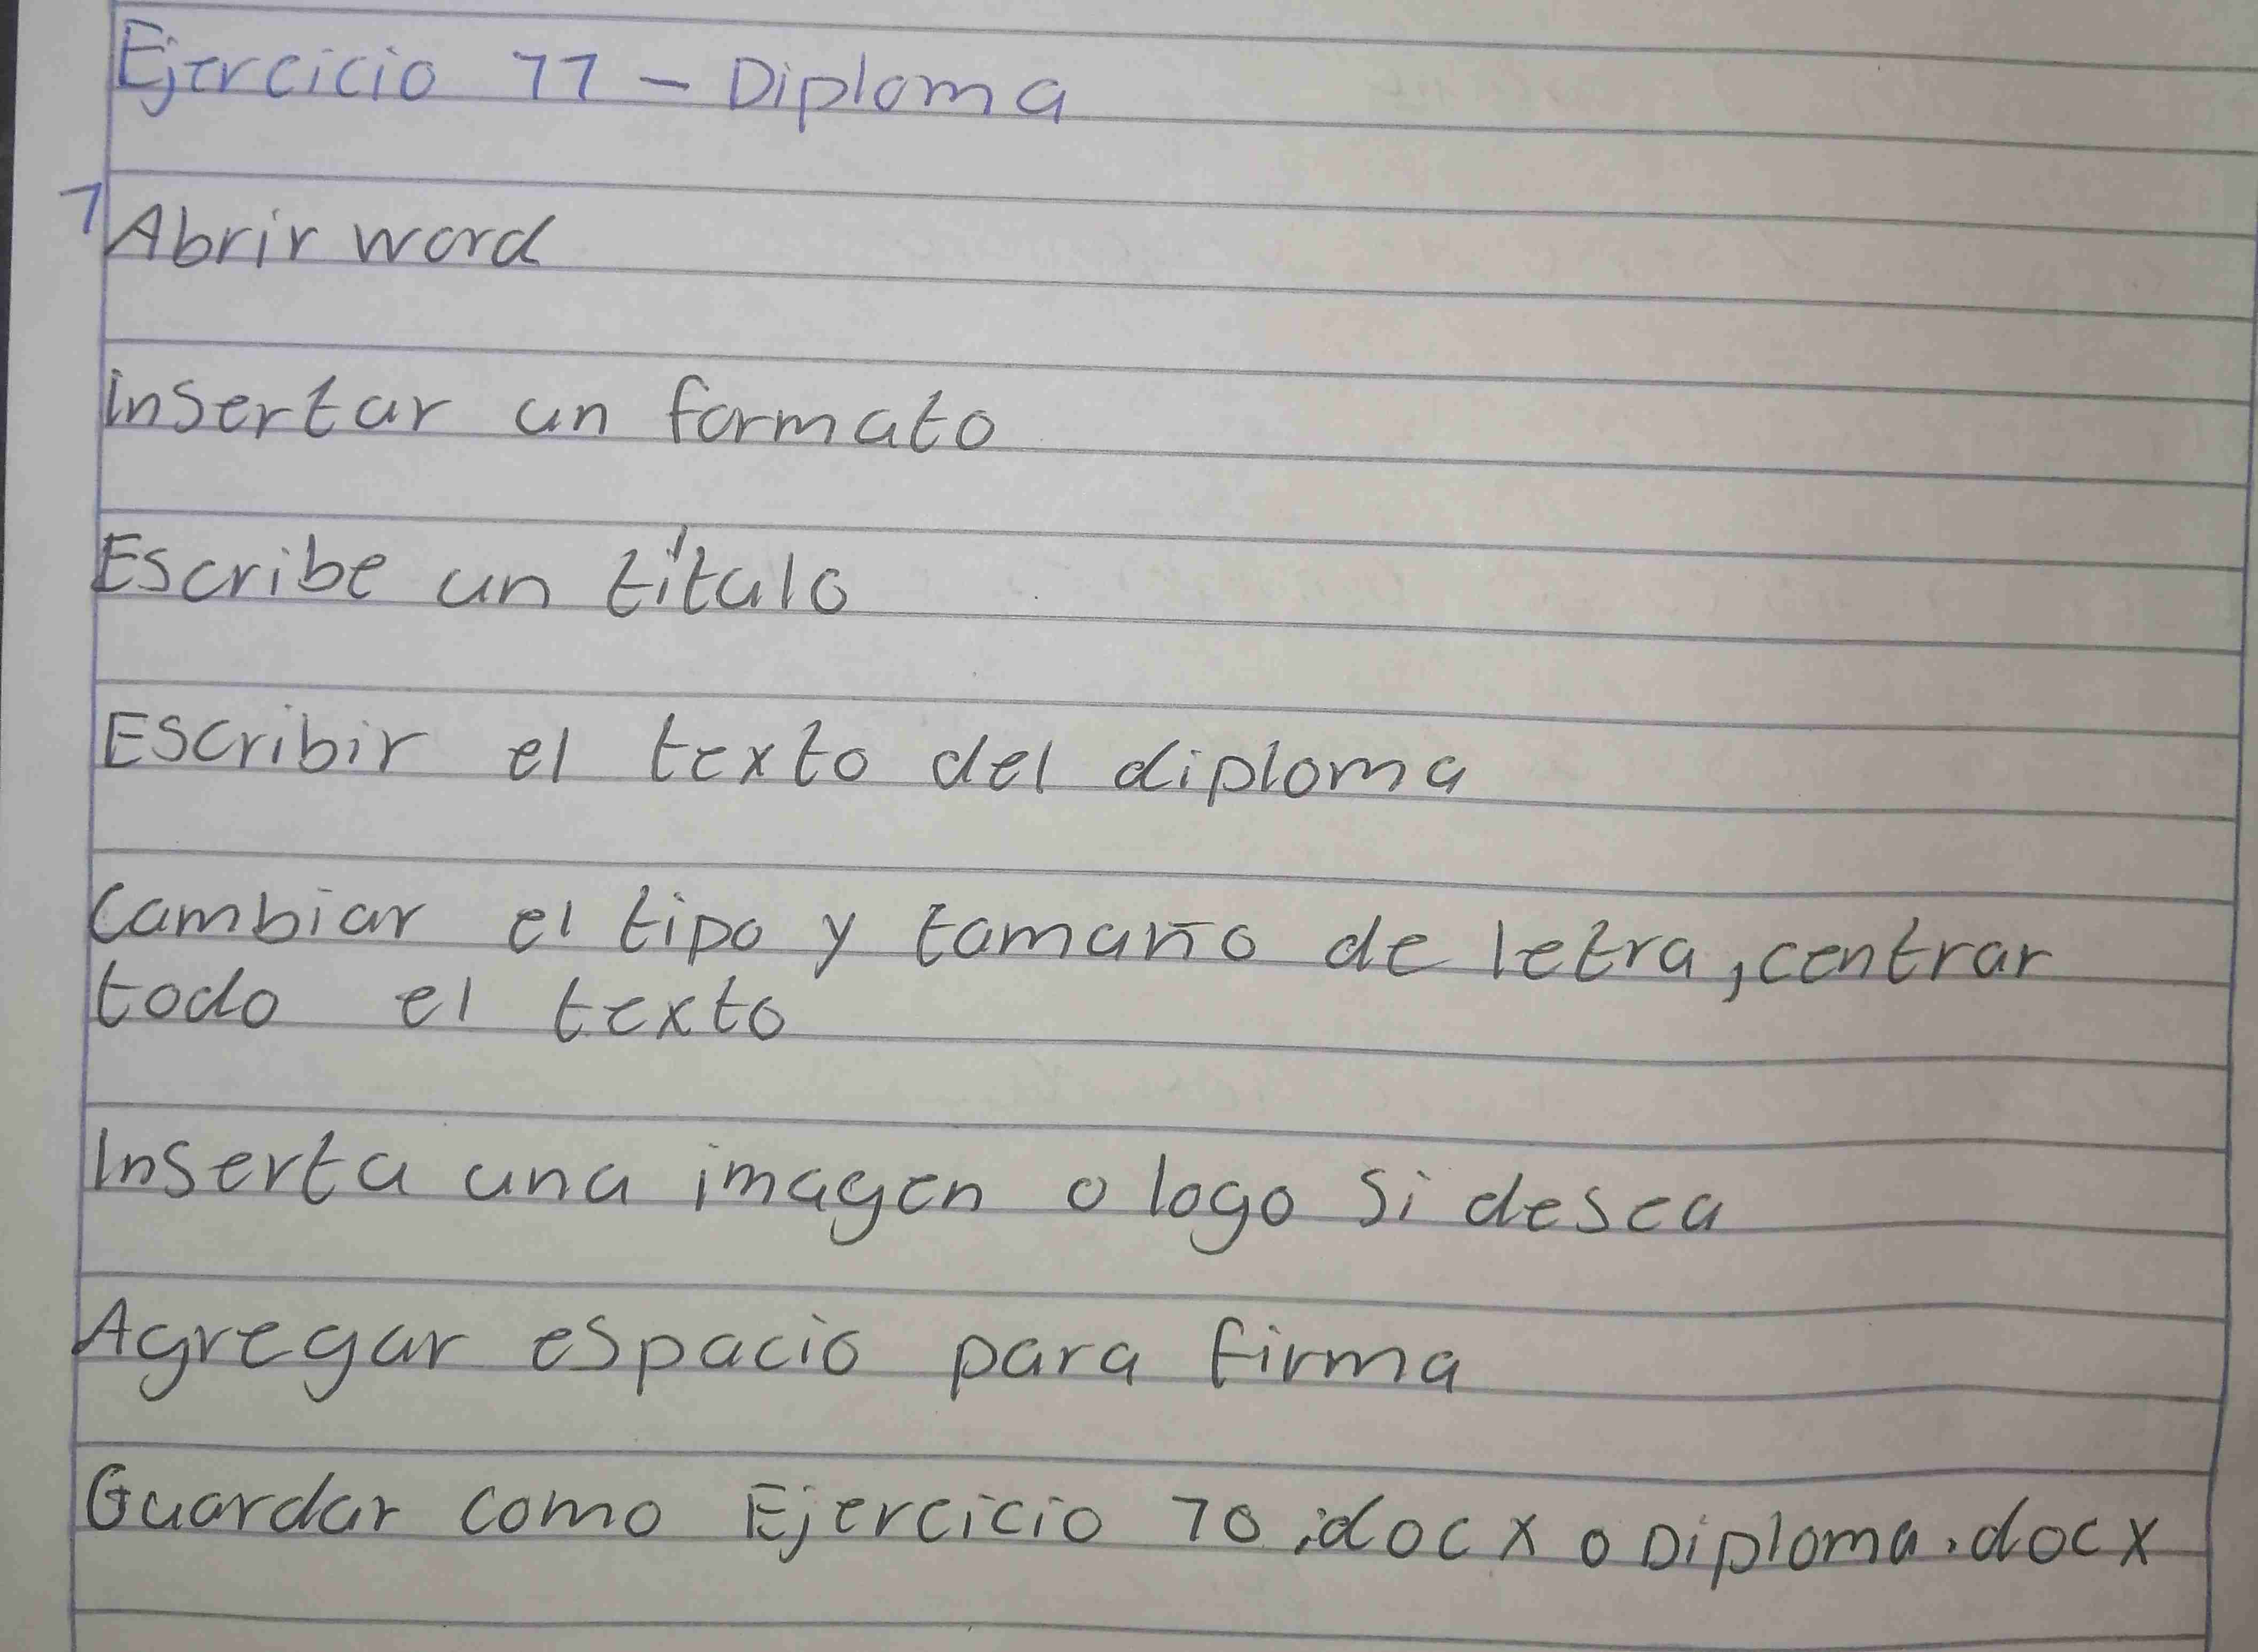 Ejercicio 11 - Diploma
1
Abrir word
insertar un formato
Escribe un título
Escribir el texto del diploma
Cambiar el tipo y tamaño de letra, centrar
todo el texto
Inserta una imagen o logo si desea
Agregar espacio para firma
Guardar como Ejercicio 10.docx o Diploma.docx